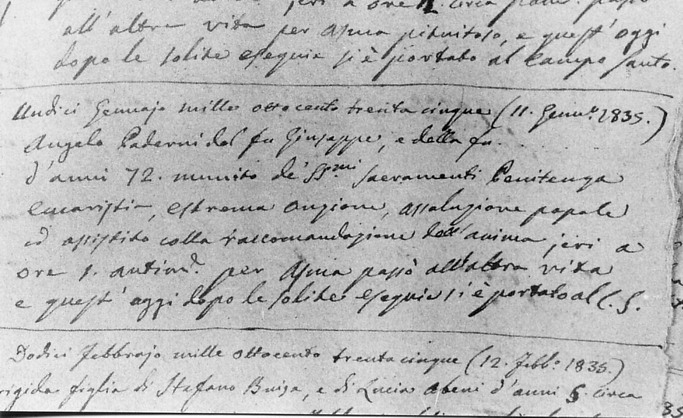 jeri a ore 2. circa
all'altra vita per asma pituitoso, e quest'oggi
dopo le solite esequie si è portato al Campo Santo.
Undici Gennajo mille ottocento trenta cinque (11. Genn.º 1835.)
Angelo Paderni del fu Giuseppe, e della fu . . .
d'anni 72. munito de' SS.mi Sacramenti Penitenza
Eucaristia, Estrema Onzione, Assoluzione papale
ed assistito colla raccomandazione dell'anima jeri a
ore 1. antim.e per Asma passò all'altra vita
e quest'oggi dopo le solite esequie si è portato al C. S.
Dodici Febbrajo mille ottocento trenta cinque (12. Febb.º 1835.)
figlia di Stefano e di Lucia Abeni d'anni 5. circa